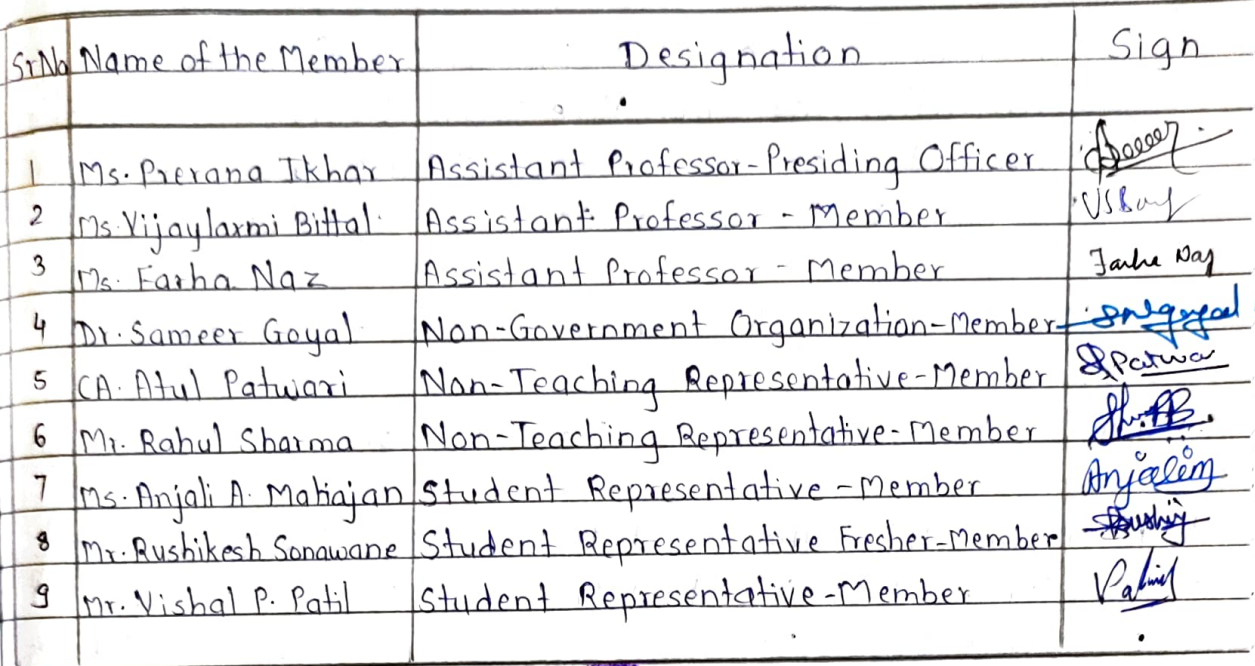 Sr No Name of the Member Designation Sign
1 Ms. Prerana Ikhar Assistant Professor-Presiding Officer
2 Ms. Vijaylaxmi Bittal Assistant Professor - Member
3 Ms. Farha Naz Assistant Professor - Member Farha Naz
4 Dr. Sameer Goyal Non-Government Organization-Member
5 CA. Atul Patwari Non-Teaching Representative-Member
6 Mr. Rahul Sharma Non-Teaching Representative-Member
7 Ms. Anjali A. Mahajan Student Representative-Member
8 Mr. Rushikesh Sonawane Student Representative Fresher-Member
9 Mr. Vishal P. Patil Student Representative-Member